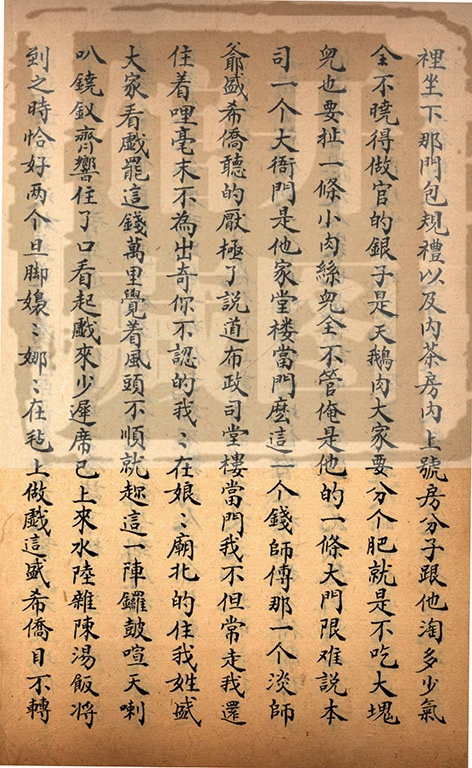 裡坐下那門包規禮以及內茶房內上號房分子跟他淘多少氣
全不曉得做官的銀子是天鵝肉大家要分个肥就是不吃大塊
兒也要扯一條小肉絲兒全不管俺是他的一條大門限难説本
司一个大衙門是他家堂楼當門麽這一个錢師傅那一个淡師
爺盛希僑聽的厭極了說道布政司堂樓當門我不但常走我還
住着哩毫末不為出奇你不認的我〻在娘〻廟北的住我姓盛
大家看戲罷這錢萬里覺着風頭不順就趂這一陣鑼皷喧天喇
叭鐃鈸齊響住了口看起戲來少遲席已上來水陸雜陳湯飯将
到之時恰好两个旦脚嬝〻娜〻在毡上做戲這盛希僑目不轉